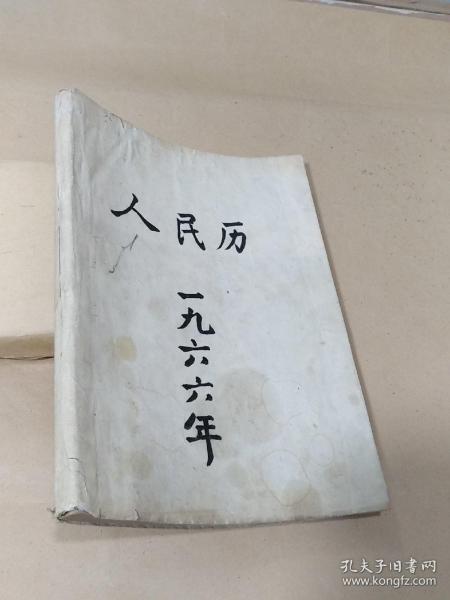 人民历
一九六六年
孔夫子旧书网
www.kongfz.com